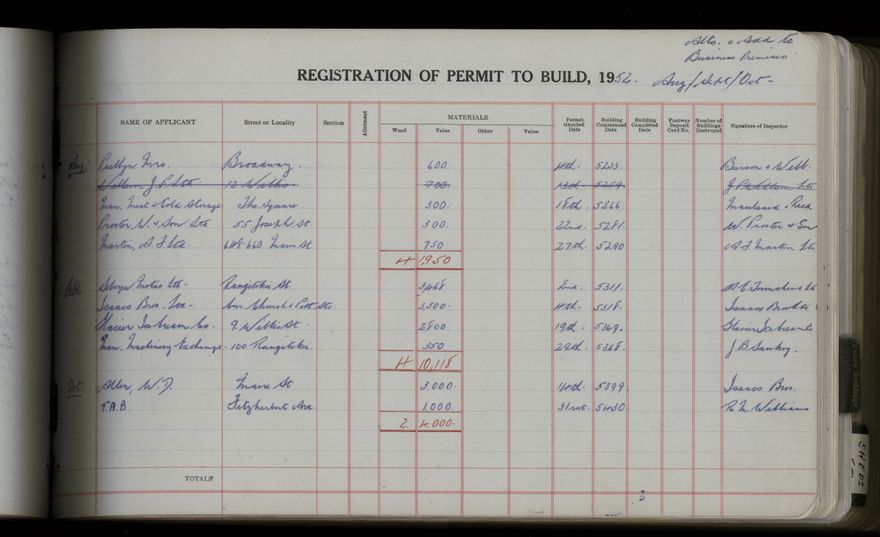 Alts. & Add to
Business Premises
REGISTRATION OF PERMIT TO BUILD, 1952. Aug/Sept/Oct-
NAME OF APPLICANT Street or Locality Section Allotment MATERIALS Permit Granted Date Building Commenced Date Building Completed Date Footway Deposit Card No. Number of Buildings Destroyed Signature of Inspector
Wood Value Other Value
Aug. Bros. Broadway. 600 4th. 5233.
J P Ltd. 12 700. 13th 5259 Ltd
Man. Meat & Cold Storage The Square 300. 18th. 5266
Procter W. & Son Ltd 55 Joseph St 300. 22nd. 5281. W. Procter & Son
Martin, A J Ltd. 648-660 Main St 750 27th 5290 A J Martin Ltd
4 1,950
Sept. Selwyn Motors Ltd. Rangitikei St. 3,468 2nd. 5311.
Isaacs Bros. Ltd. Cnr. Church & Pitt Sts 3,500. 4th. 5318. Isaacs Brothers
Glacier Icecream Co. 9. Willis St. 2,800. 19th. 5349. Glacier Icecream
Man. Machinery Exchange. 100 Rangitikei. 350. 29th. 5368. J. B. Sankey.
4 10,118
Oct. Allen, W. D. Main St 3,000. 14th. 5399 Isaacs Bros.
T.A.B. Fitzherbert Ave 1,000. 31st. 5430 Williams
2. 4,000.
TOTALS
SHEDS